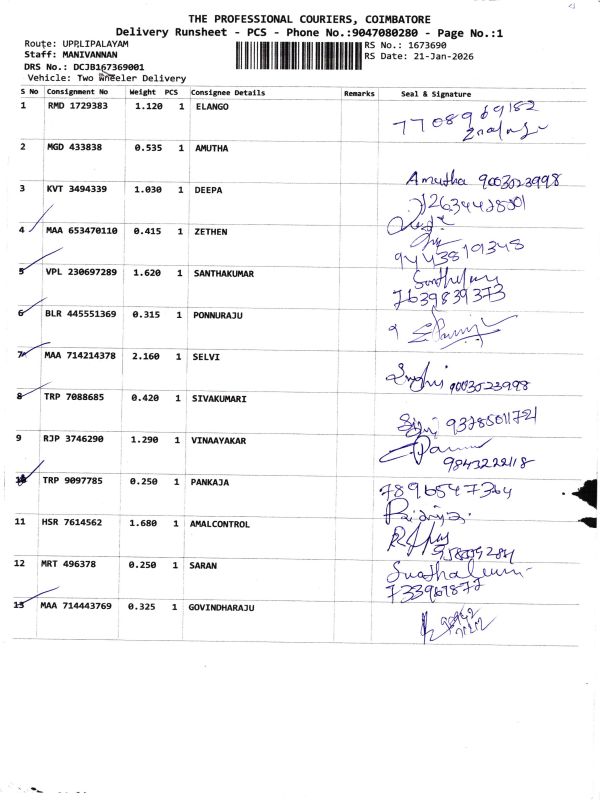 THE PROFESSIONAL COURIERS, COIMBATORE
Delivery Runsheet - PCS - Phone No.:9047080280 - Page No.:1
Route: UPPILIPALAYAM
Staff: MANIVANNAN
DRS No.: DCJB167369001
Vehicle: Two Wheeler Delivery
RS No.: 1673690
RS Date: 21-Jan-2026
S No Consignment No Weight PCS Consignee Details Remarks Seal & Signature
1 RMD 1729383 1.120 1 ELANGO 7708969182
2 MGD 433838 0.535 1 AMUTHA Amutha 9003023998
3 KVT 3494339 1.030 1 DEEPA
4 MAA 653470110 0.415 1 ZETHEN
5 VPL 230697289 1.620 1 SANTHAKUMAR 7639839373
6 BLR 445551369 0.315 1 PONNURAJU
7 MAA 714214378 2.160 1 SELVI 9003023998
8 TRP 7088685 0.420 1 SIVAKUMARI
9 RJP 3746290 1.290 1 VINAAYAKAR 9843222118
10 TRP 9097785 0.250 1 PANKAJA 7896547364
11 HSR 7614562 1.680 1 AMALCONTROL
12 MRT 496378 0.250 1 SARAN
13 MAA 714443769 0.325 1 GOVINDHARAJU